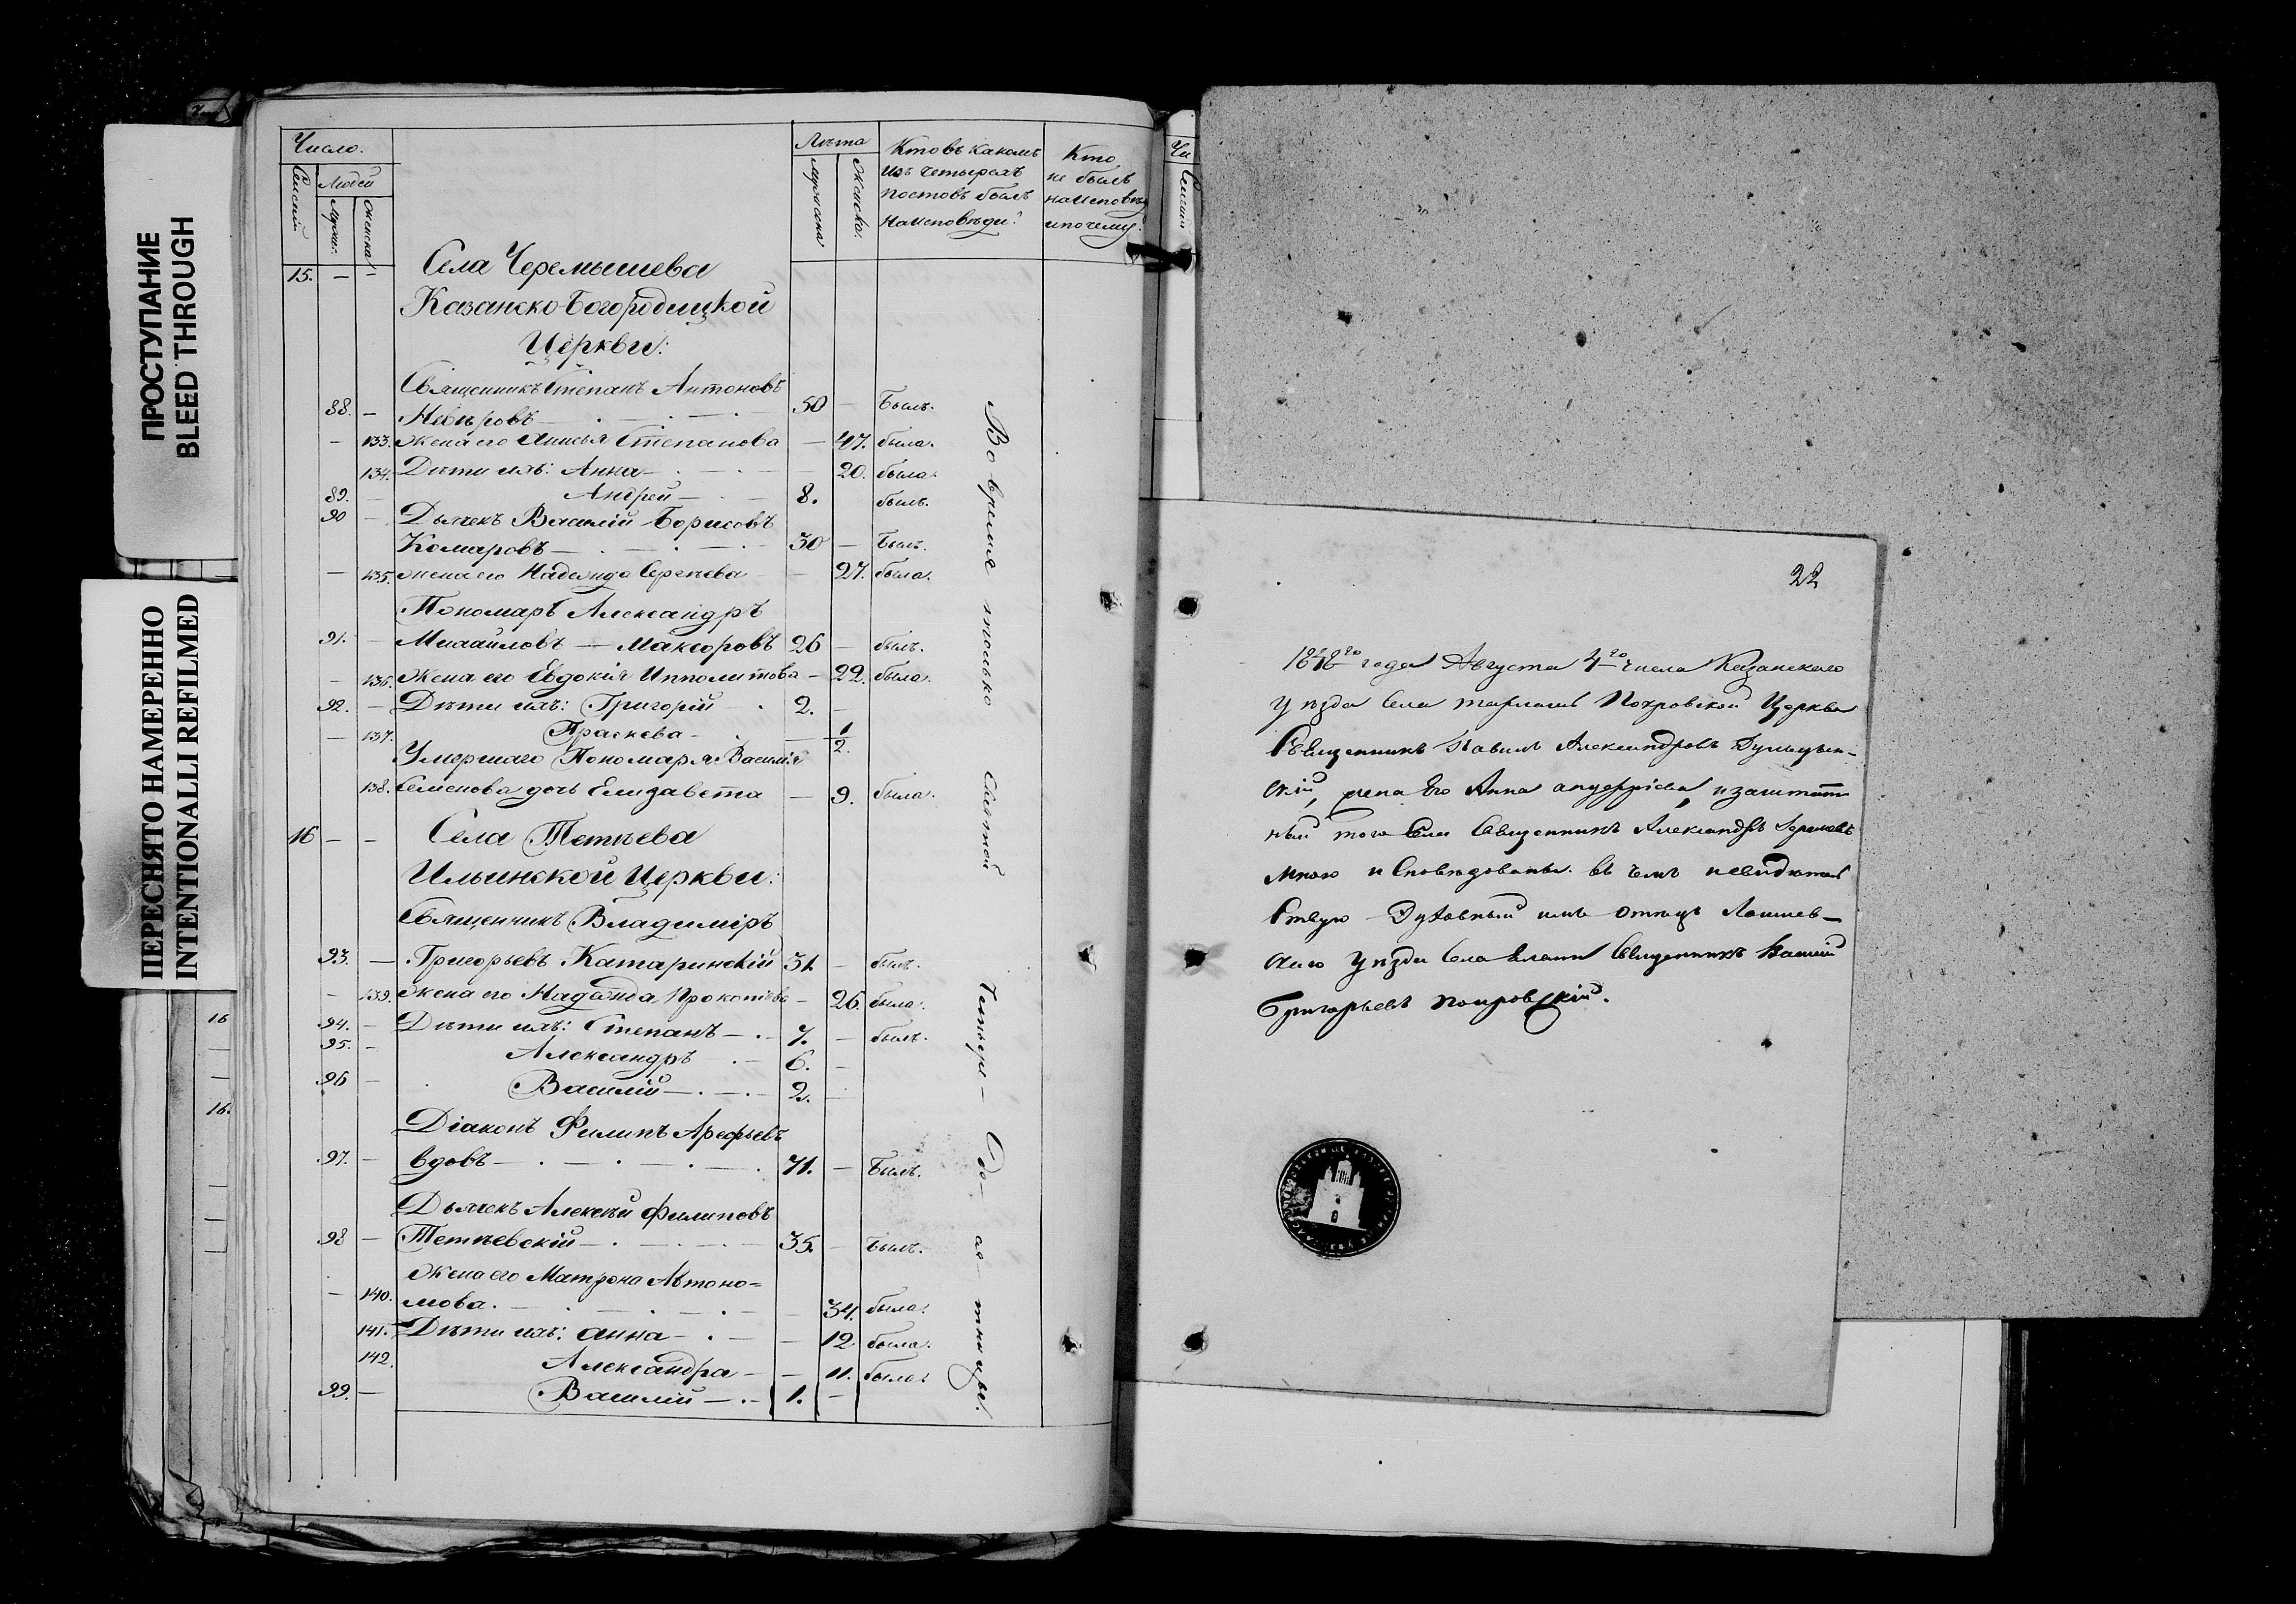 ПРОСТУПАНИЕ
BLEED THROUGH
ПЕРЕСНЯТО НАМЕРЕННО
INTENTIONALLI REFILMED
Число. Лѣта Кто въ какомъ Кто
Семей Людей Мужеска Женска. изъ четырехъ не былъ
Мужес. Женска постовъ былъ на исповѣди
на исповѣди? и почему?
15. — — Села Черемышева
Казанско-Богородицкой
Церкви:
Священникъ Степанъ Антоновъ
88. — Невѣровъ — 50 — Былъ.
— 133. Жена его Анисья Степанова — 47. была.
134. Дѣти ихъ: Анна — 20. была.
89. — Андрей — 8. былъ.
90 — Дьячекъ Василій Борисовъ
Комаровъ — 30 — Былъ.
— 135. жена его Надежда Сергѣева — 27. была.
Пономарь Александръ
91. — Михайловъ — Макс­оровъ 26 — былъ.
— 136. Жена его Евдокія Ипполитова — 22. была.
92. — Дѣти ихъ: Григорій — 2. —
— 137. Праскева — 1/2.
Умершаго Пономаря Василія
138. Семенова дочь Елизавета — 9. была.
16 — — Села Тетѣева
Ильинской Церкви:
Священникъ Владиміръ
93. — Григорьевъ Катаринскій 31. — былъ.
— 139. Жена его Надежда Прокопіева — 26. была.
94. — Дѣти ихъ: Степанъ — 7. — былъ.
95. — Александръ — 6. —
96 — Василій — 2. —
Діаконъ Филипъ Арефьевъ
97. — вдовъ — 71. — Былъ.
Дьячекъ Алексѣй Филиповъ
98 — Тетѣевскій — 35. — Былъ.
Жена его Матрона Автоно=
— 140. мова. — 34. была.
141. Дѣти ихъ: Анна — 12. была.
142. Александра — 11. была.
99. — Василій — 1. —
Во время только Святой Четыре-де-ся-тницы.
16
16.
Чи
Семей
22
года Августа 4го числа Казанскаго
уѣзда села Покровской Церкви
Священникъ Павелъ Александровъ
скій, жена его Анна и заштат
ный того села Священникъ Александръ
мною исповѣдованы. въ чемъ
Духовный имъ отецъ Лаишев-
скаго уѣзда села Священникъ Василій
Григорьевъ Покровскій.